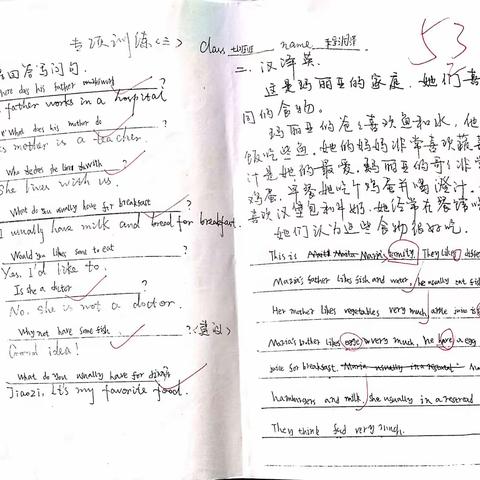 专项训练(三) Class name
53
答写问句.
Where does his father ?
father works in a hospital
What does his mother do ?
is mother is a teacher.
Who does live with ?
She lives with us.
What do you usually have for breakfast ?
I usually have milk and bread for breakfast.
Would you like some to eat ?
Yes, I'd like to.
Is she a doctor ?
No, she is not a doctor.
Why not have some fish ?(建议)
Good idea!
What do you usually have for ?
Jiaozi, it's my favorite food.
二、汉译英.
这是玛丽亚的家庭. 她们喜
同的食物.
玛丽亚的爸爸喜欢鱼和水, 他
饭吃些鱼. 她的妈妈非常喜欢蔬
汁是她的最爱. 玛丽亚的哥哥非常
鸡蛋. 早餐她吃个鸡蛋并喝橙汁.
喜欢汉堡包和牛奶. 她经常在餐馆
她们认为这些食物很好吃.
This is Maria family. They like
Maria's father likes fish and water, he usually eat fis
Her mother likes vegetables very much apple juice is
Maria's bother likes eggs very much, he have a egg
juice for breakfast.
hambugers and milk, she usually in a
They think very much.